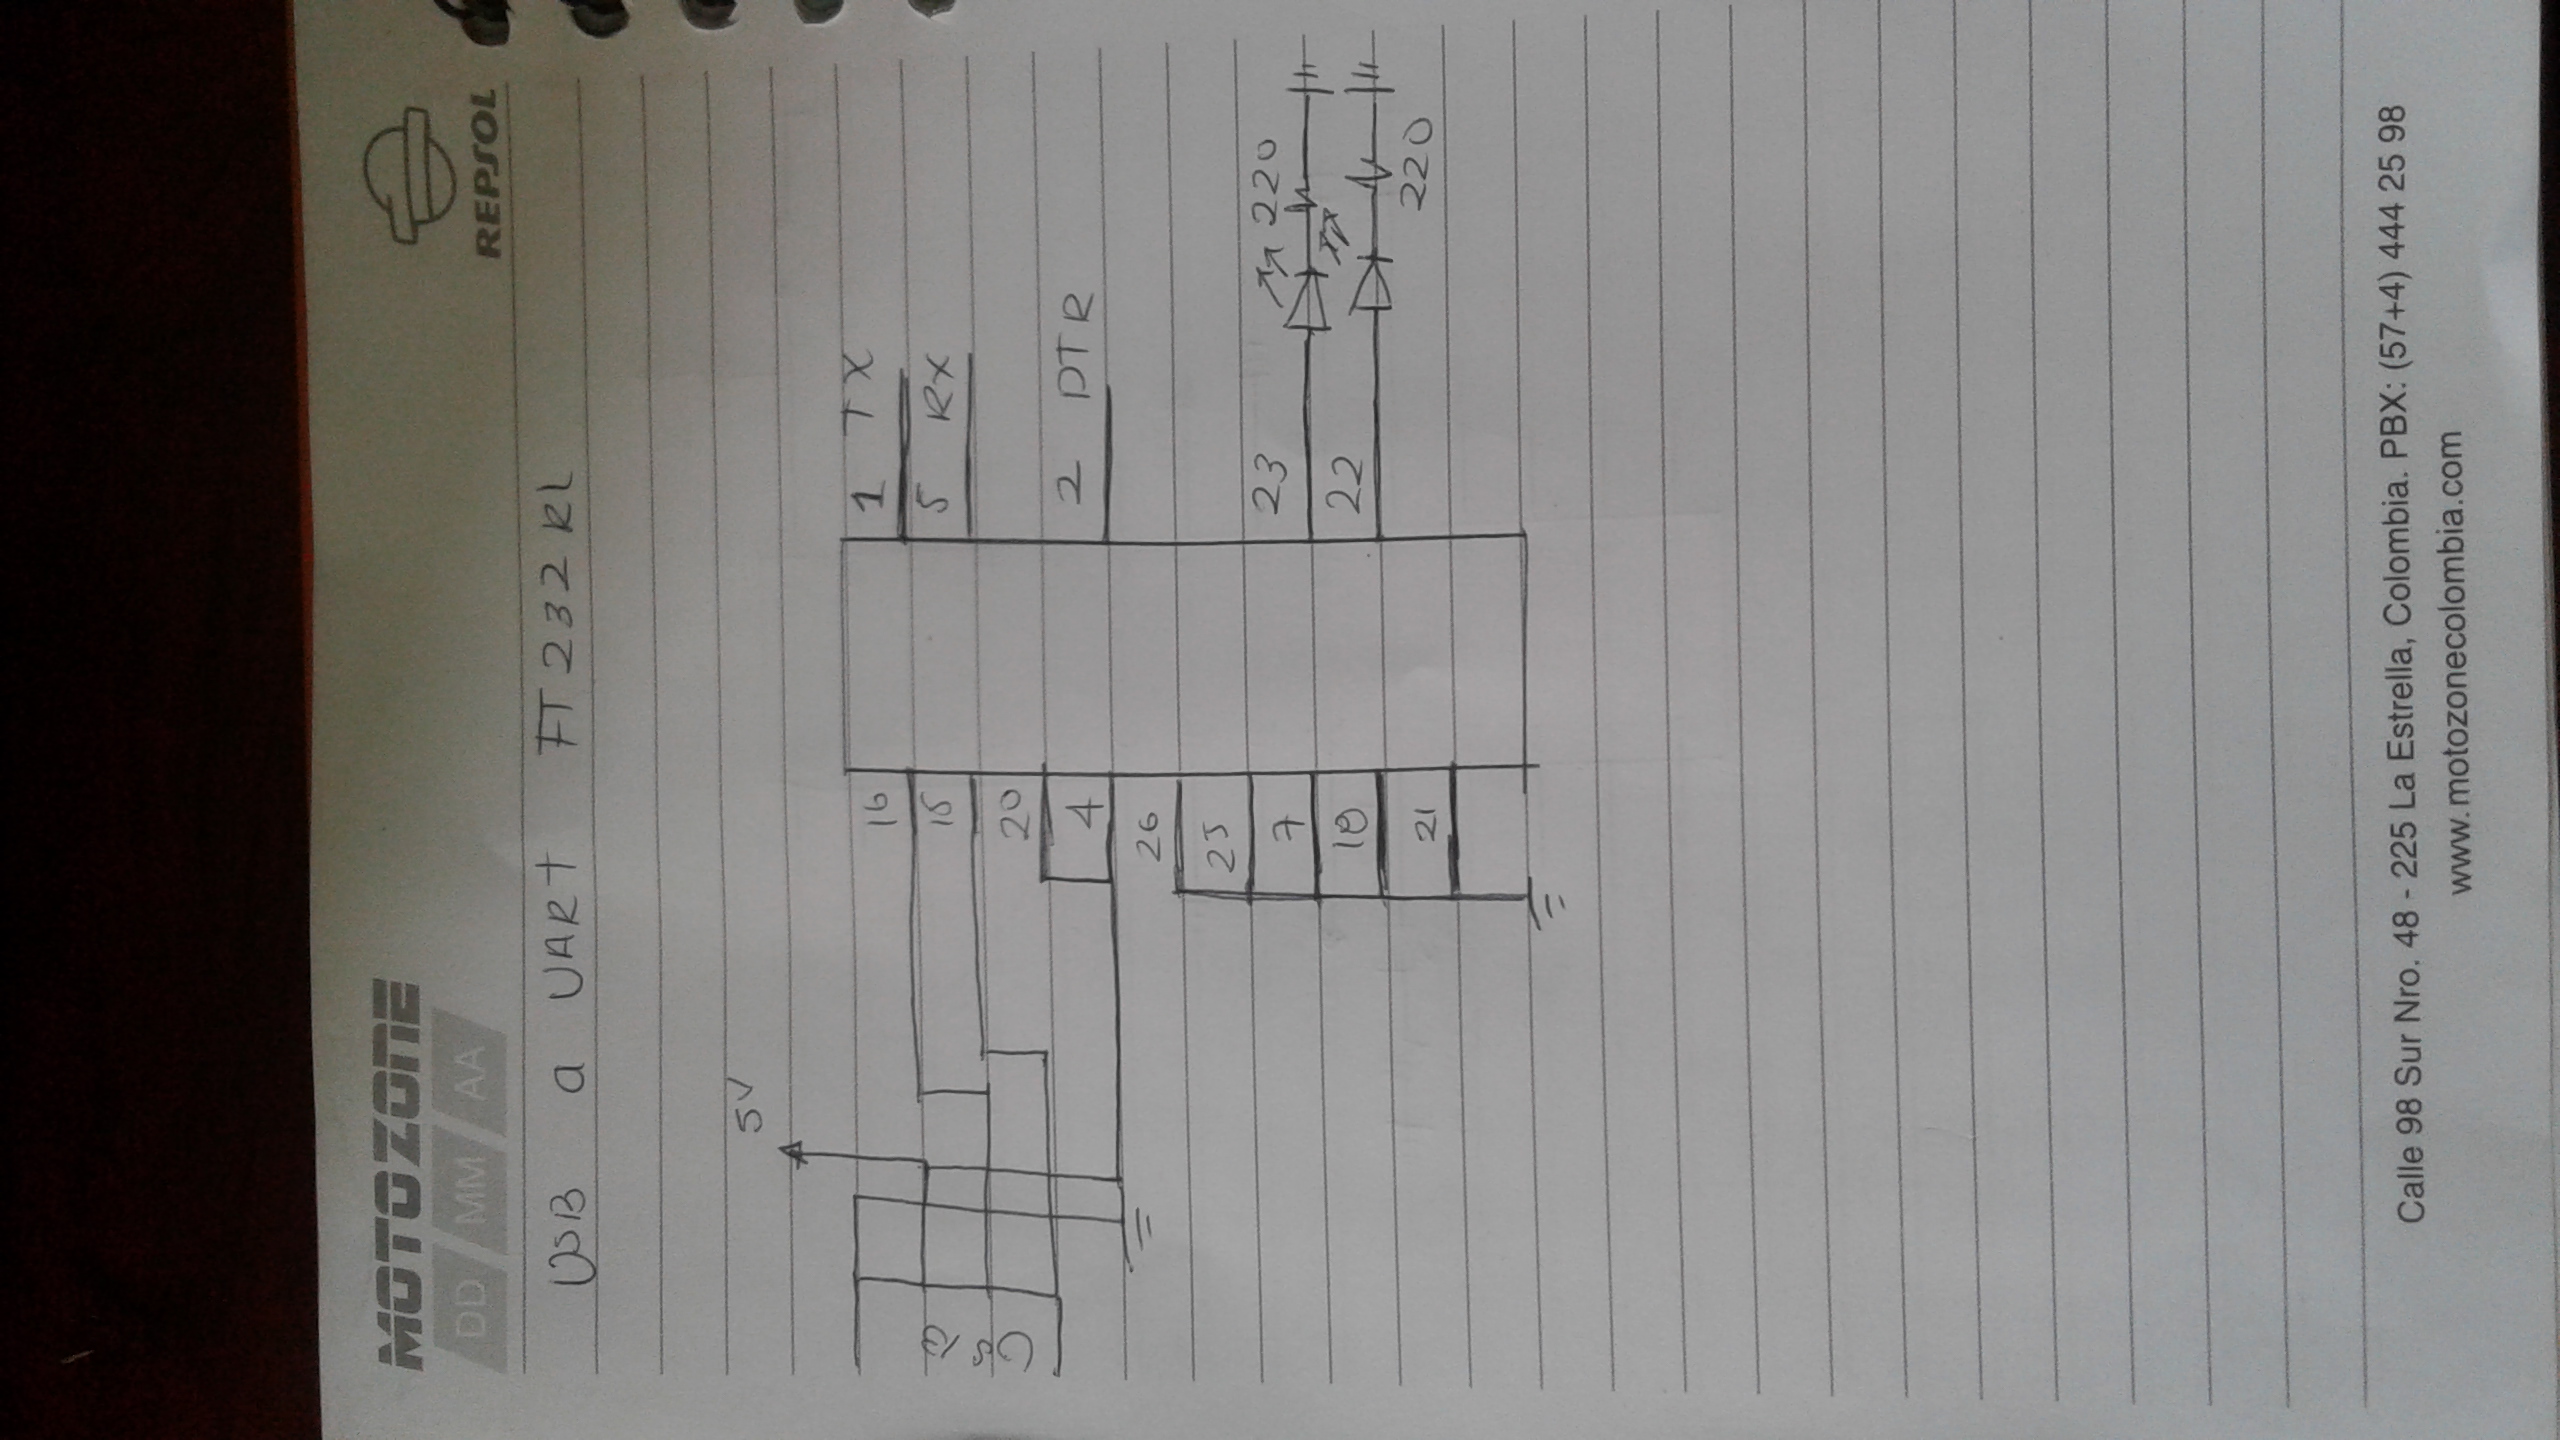 MOTOZONE
DD MM AA
REPSOL
USB a UART FT232RL
5V
USB
16
15
20
4
26
25
7
18
21
1 TX
5 RX
2 DTR
23 220
22
220
Calle 98 Sur Nro. 48 - 225 La Estrella, Colombia. PBX: (57+4) 444 25 98
www.motozonecolombia.com